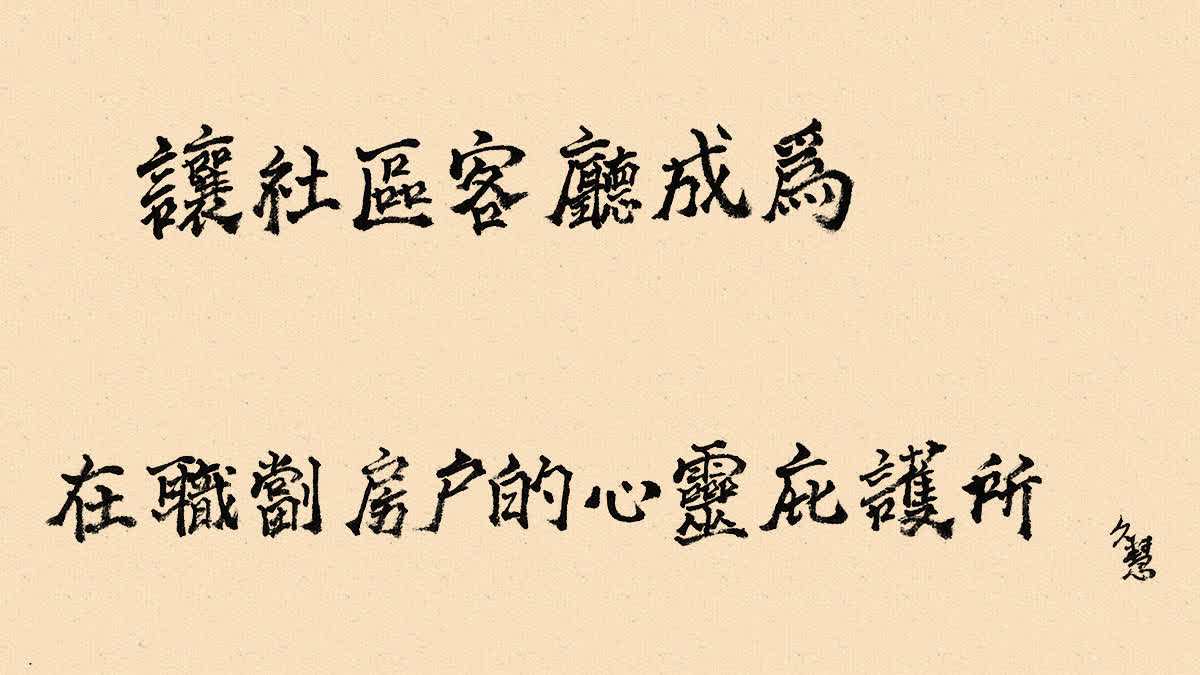 讓社區客廳成爲
在職劏房户的心靈庇護所
久慧